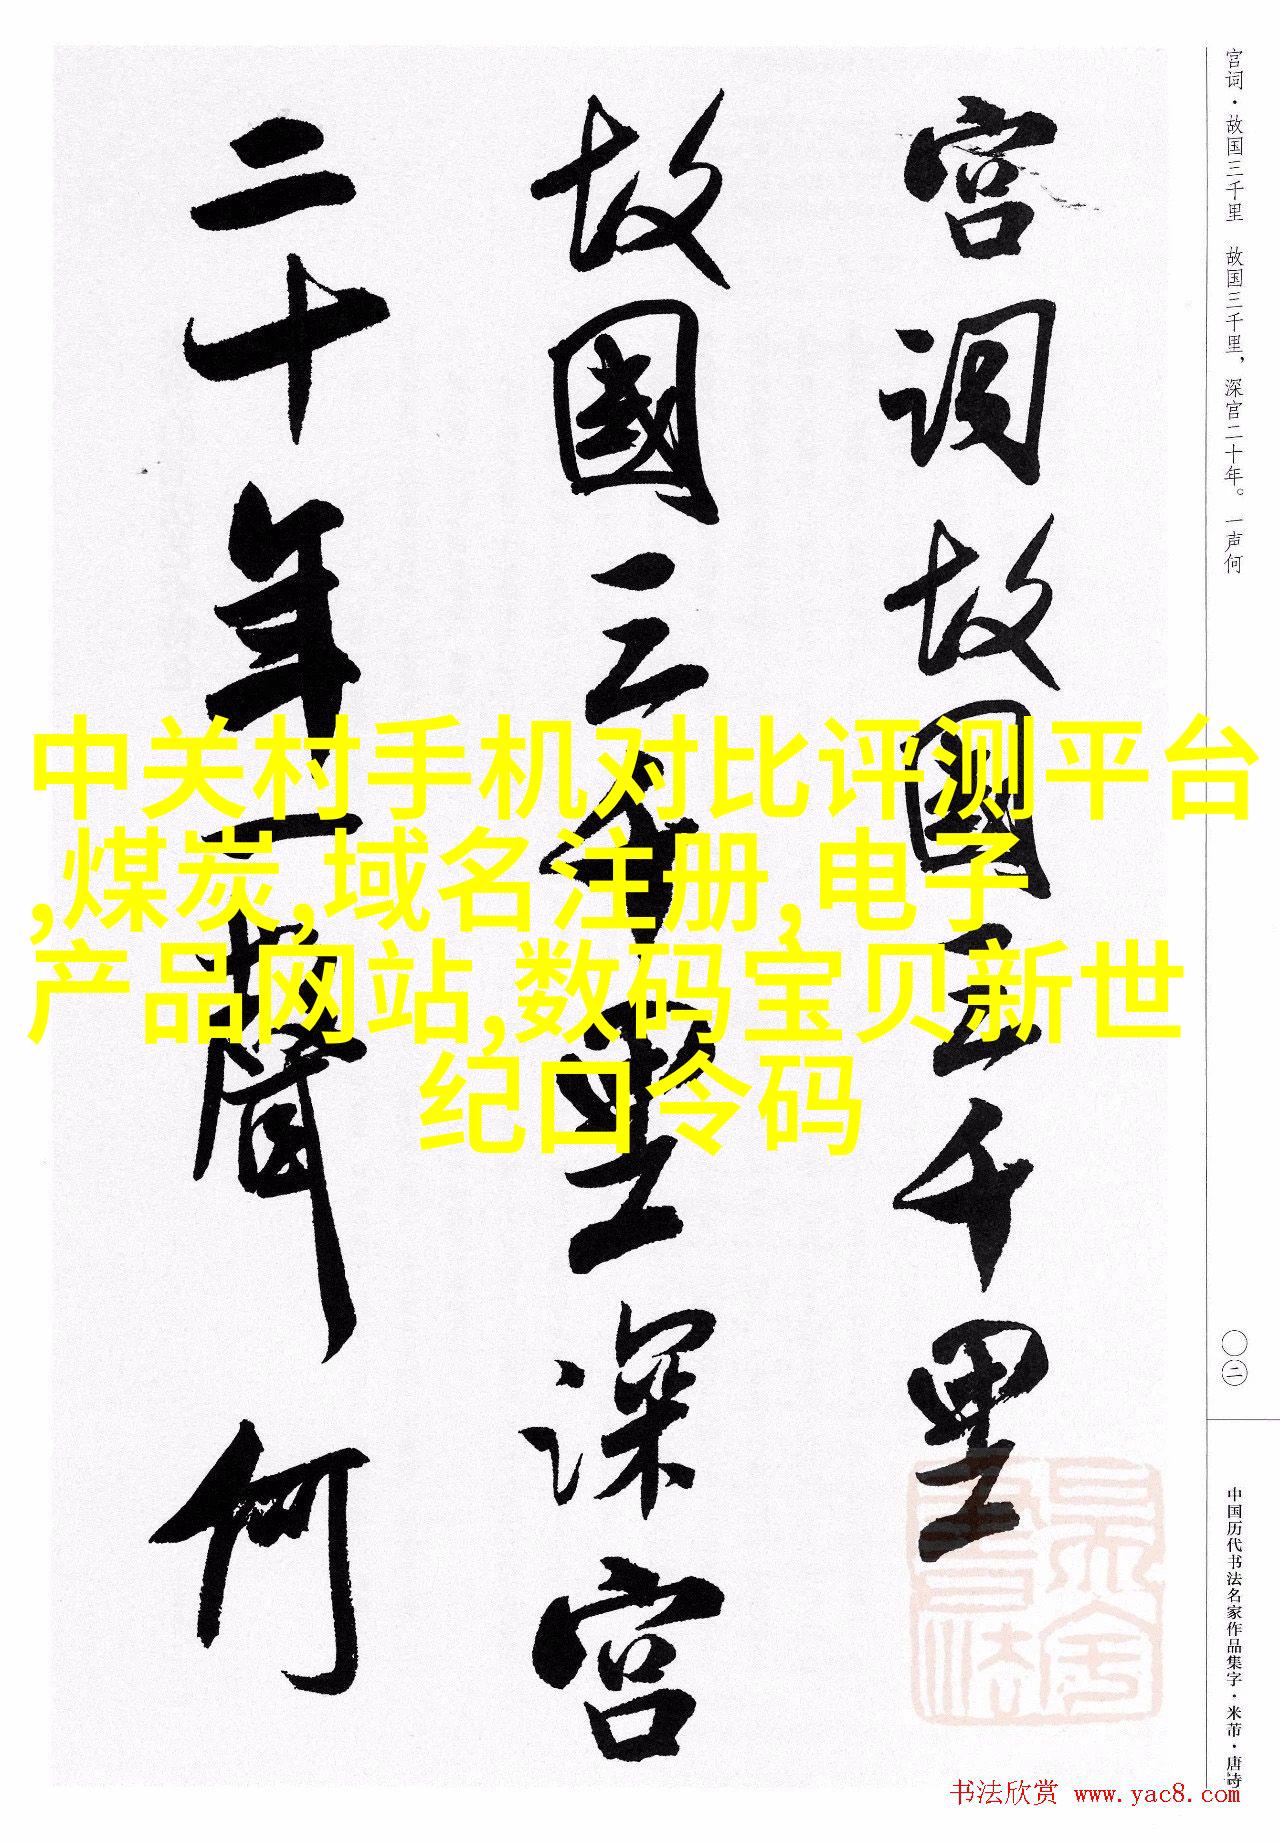 宫词·故国三千里　故国三千里，深宫二十年。一声何
宫词故國三千里
故國三千里深宫
二十年一聲何
中关村手机对比评测平台
,煤炭,域名注册,电子
产品网站,数码宝贝新世
纪口令码
〇二
中国历代书法名家作品集字·米芾·唐诗
书法欣赏 www.yac8.com